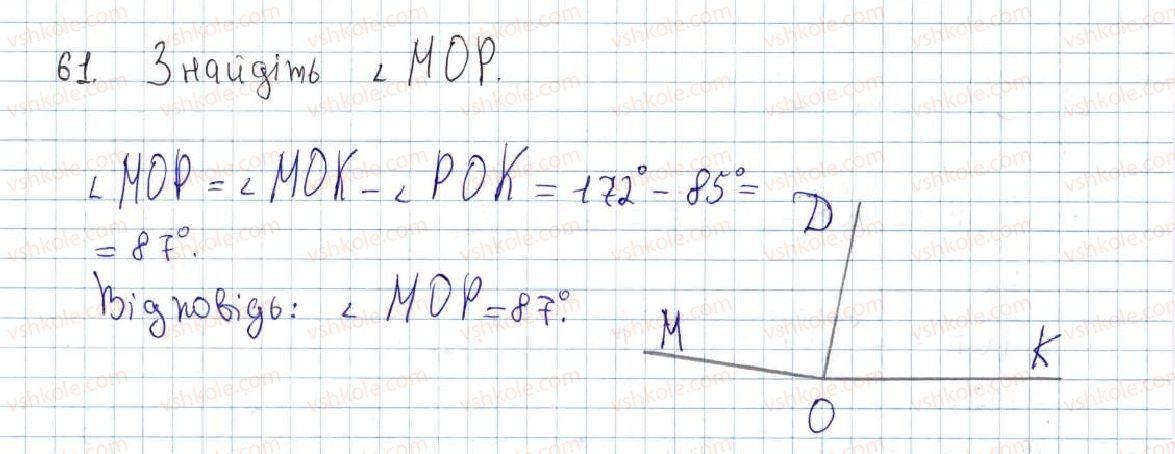 61. Знайдіть ∠ MOP.
∠ MOP = ∠ MOK - ∠ POK = 172° - 85° =
= 87°.
Відповідь: ∠ MOP = 87°.
D
M
K
O